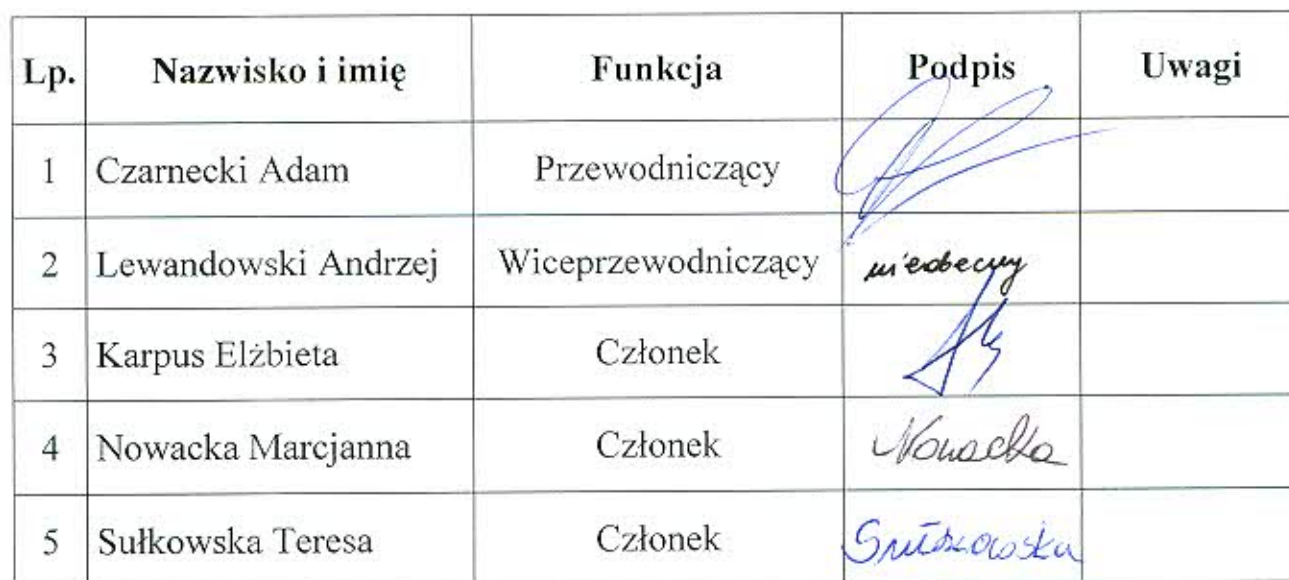 Lp. Nazwisko i imię Funkcja Podpis Uwagi
1 Czarnecki Adam Przewodniczący
2 Lewandowski Andrzej Wiceprzewodniczący nieobecny
3 Karpus Elżbieta Członek
4 Nowacka Marcjanna Członek Nowacka
5 Sułkowska Teresa Członek Sułkowska